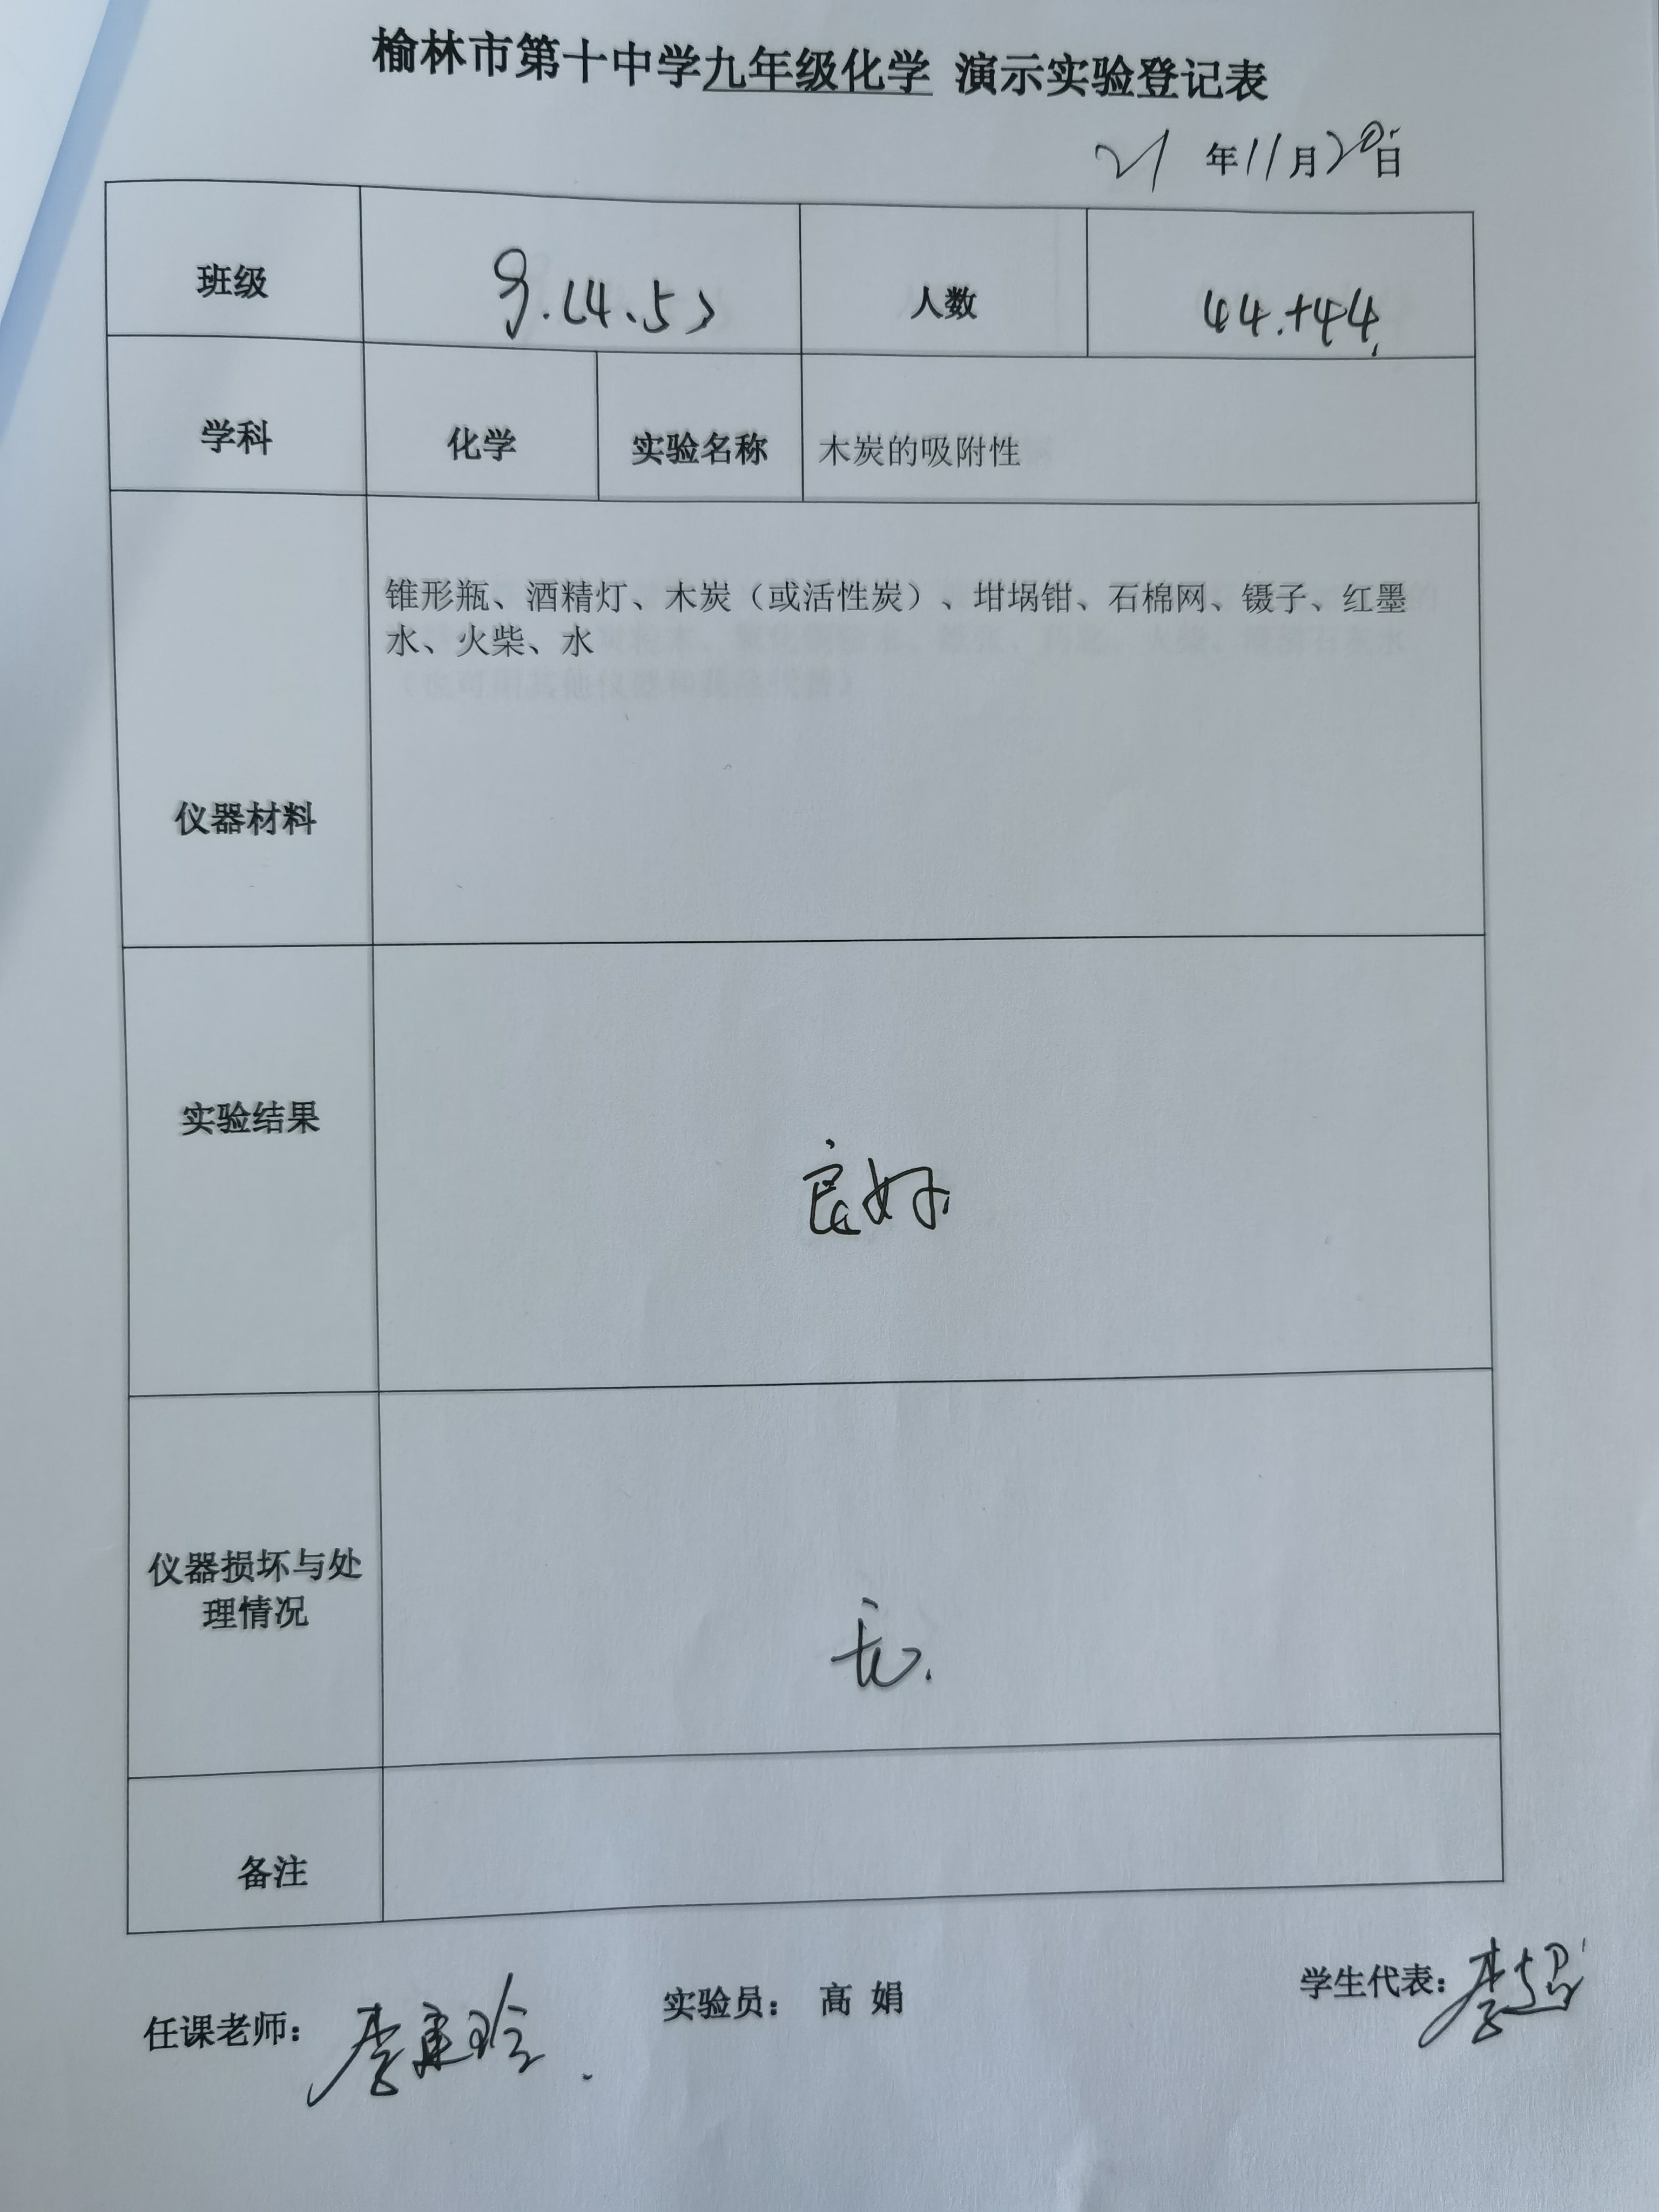 榆林市第十中学九年级化学 演示实验登记表
21 年 11 月 20 日
班级 9.(4.5) 人数 44.+44.
学科 化学 实验名称 木炭的吸附性
锥形瓶、酒精灯、木炭（或活性炭）、坩埚钳、石棉网、镊子、红墨
水、火柴、水
仪器材料
实验结果
良好
仪器损坏与处
理情况
无.
备注
任课老师： 李 实验员： 高 娟 学生代表： 李超